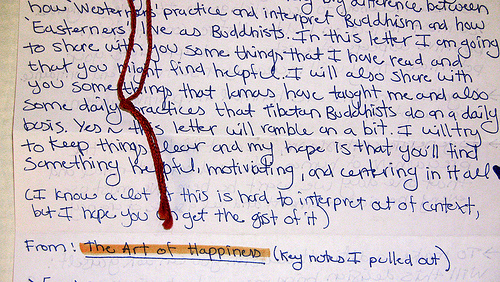 how Westerners practice and interpret Buddhism and how
'Easterners' live as Buddhists. In this letter I am going
to share with you some things that I have read and
that you might find helpful. I will also share with
you some things that lamas have taught me and also
some daily practices that Tibetan Buddhists do on a daily
basis. Yes ~ this letter will ramble on a bit. I will try
to keep things clear and my hope is that you'll find
something helpful, motivating, and centering in it all
(I know a lot of this is hard to interpret out of context,
but I hope you can get the gist of it)
From: The Art of Happiness (key notes I pulled out)